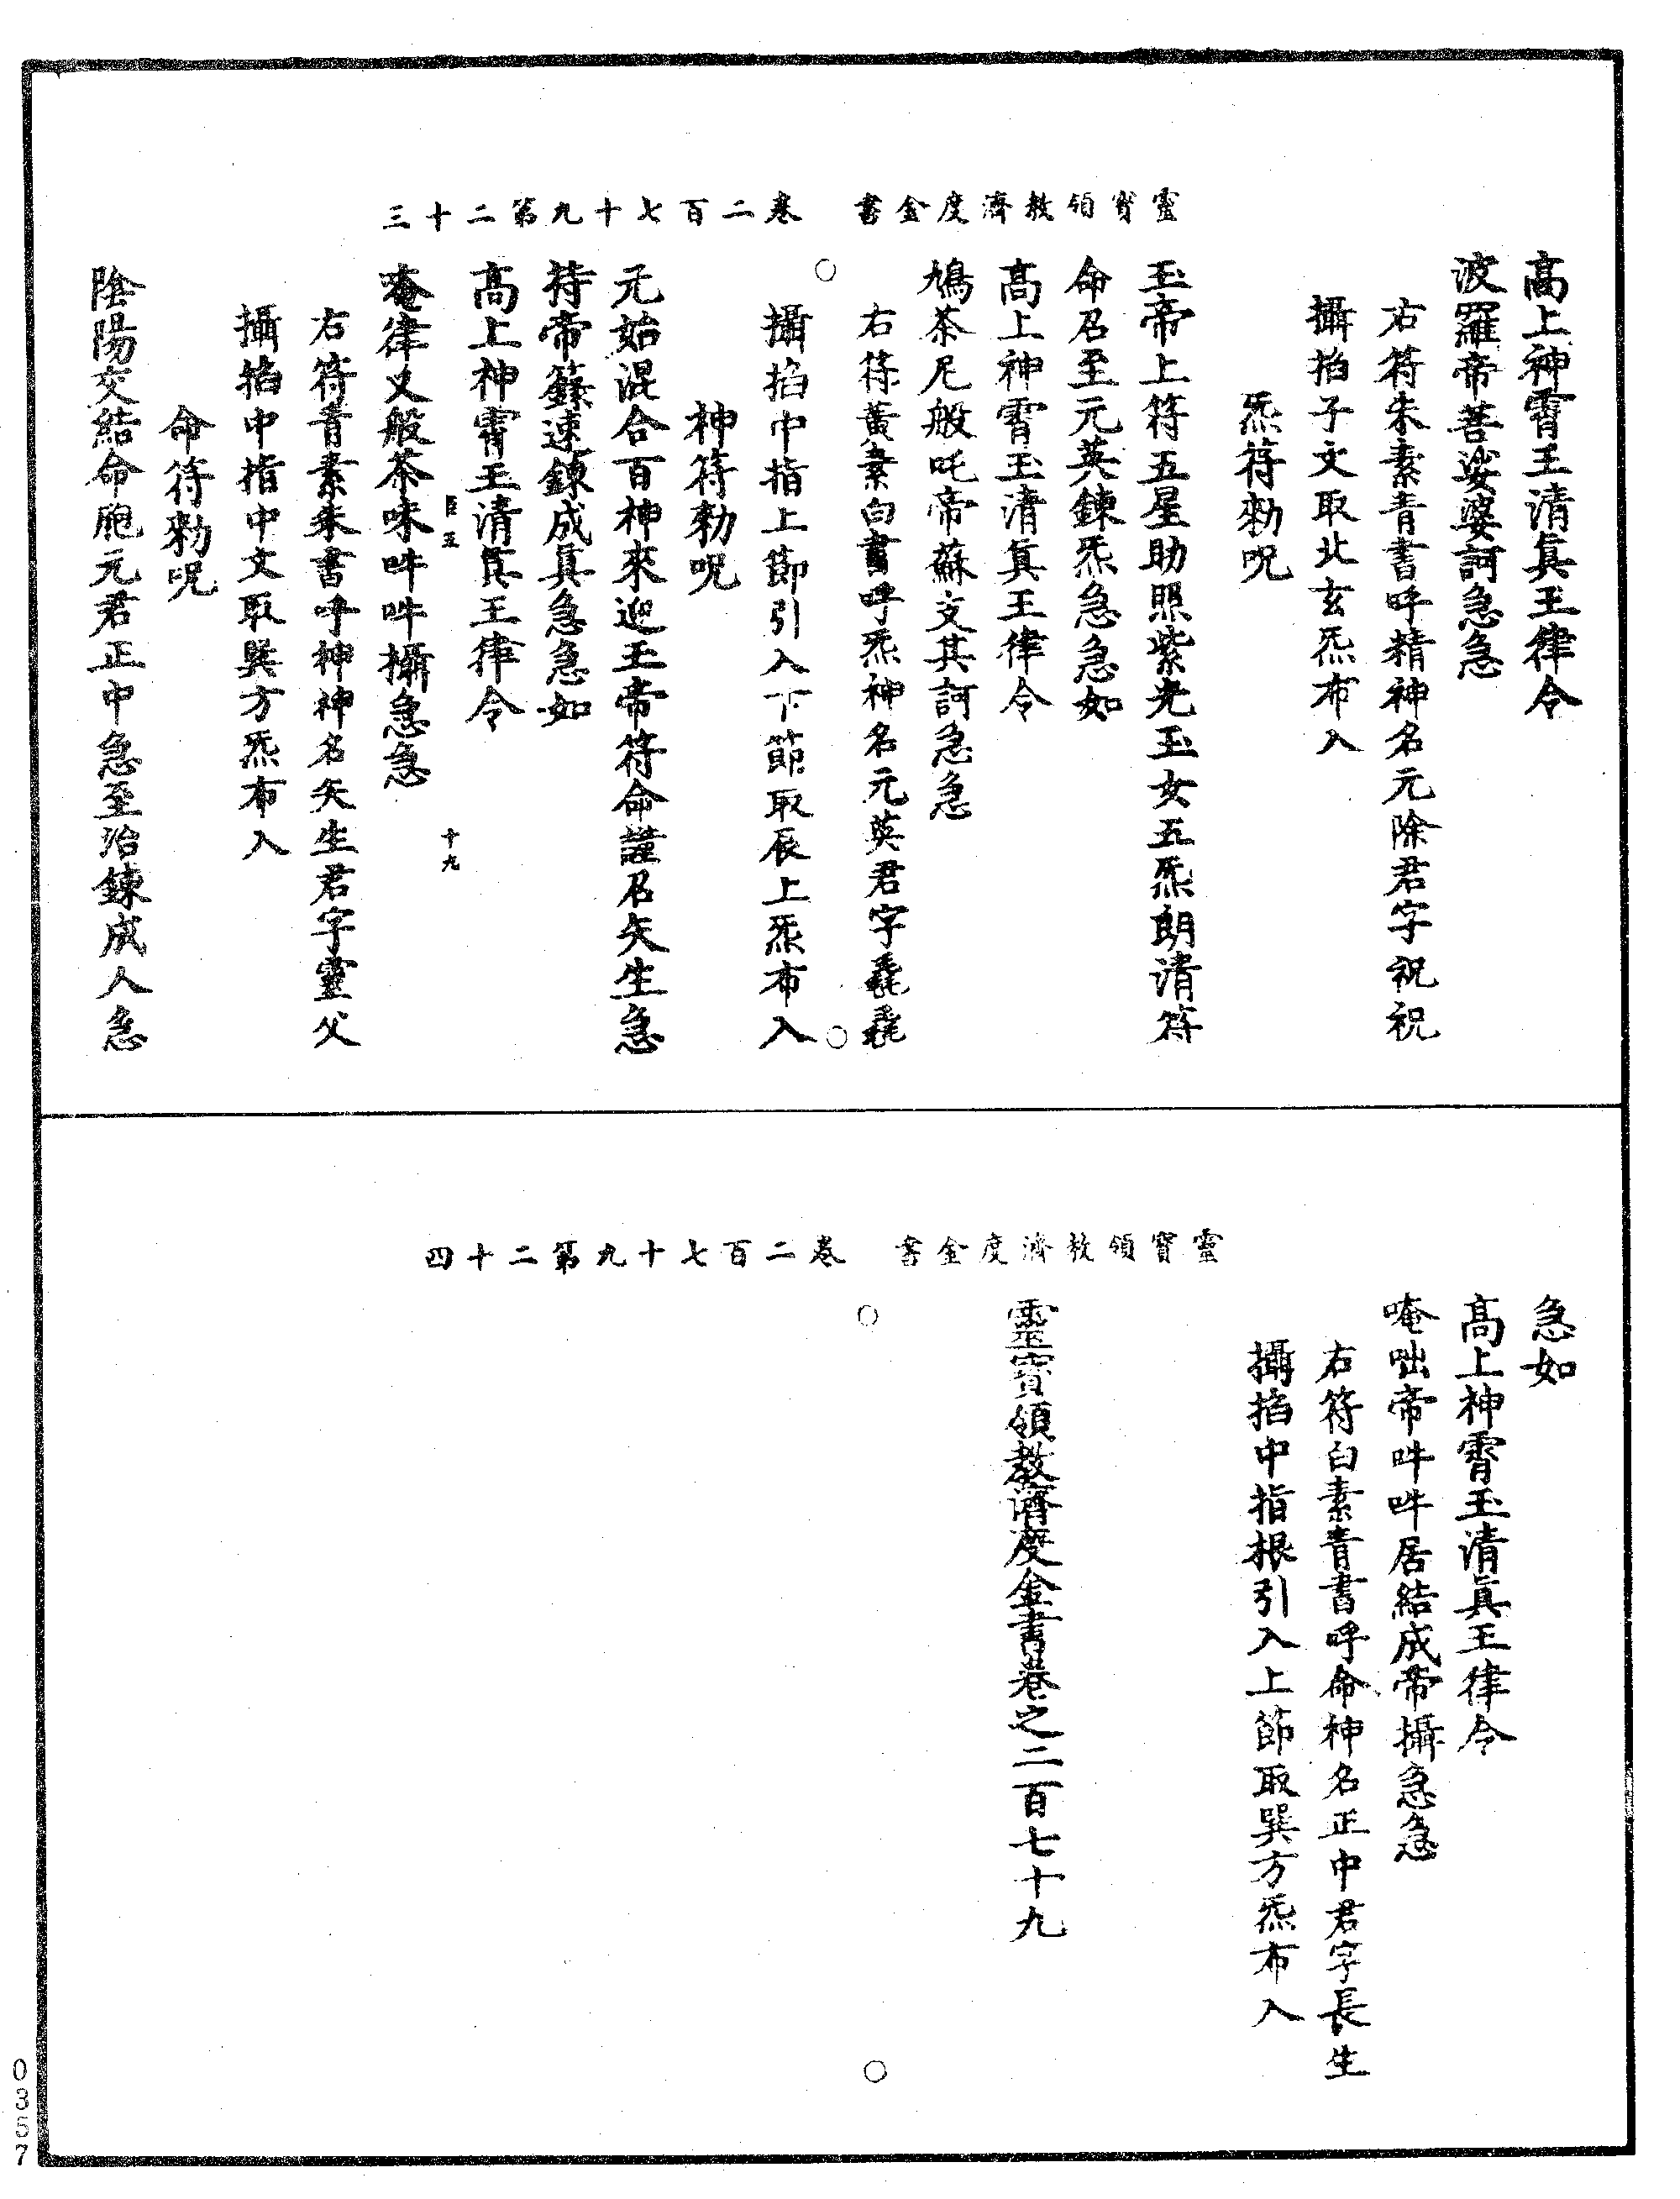 靈寶領教濟度金書　卷二百七十九第二十三
高上神霄玉清真王律令
波羅帝菩娑婆訶急急
右符朱素青書呼精神名元除君字祝祝
攝掐子文取北玄炁布入
炁符勑呪
玉帝上符五星助照紫光玉女五炁朗清符
命召至元英鍊炁急急如
高上神霄玉清真王律令
鳩茶尼般吒帝蘇文其訶急急
右符黃素白書呼炁神名元英君字毳毳
攝掐中指上節引入下節取辰上炁布入
神符勑呪
元始混合百神來迎玉帝符命謹召矢生急
符帝籙速鍊成真急急如
高上神霄玉清真王律令
臣五　十九
唵律叉般茶味吽吽攝急急
右符青素朱書呼神神名矢生君字靈父
攝掐中指中文取巽方炁布入
命符勑呪
陰陽交結命胞元君正中急至治鍊成人急
靈寶領教濟度金書　卷二百七十九第二十四
急如
高上神霄玉清真王律令
唵咄帝吽吽居結成帝攝急急
右符白素青書呼命神名正中君字長生
攝掐中指根引入上節取巽方炁布入
靈寶領教濟度金書卷之二百七十九
0357